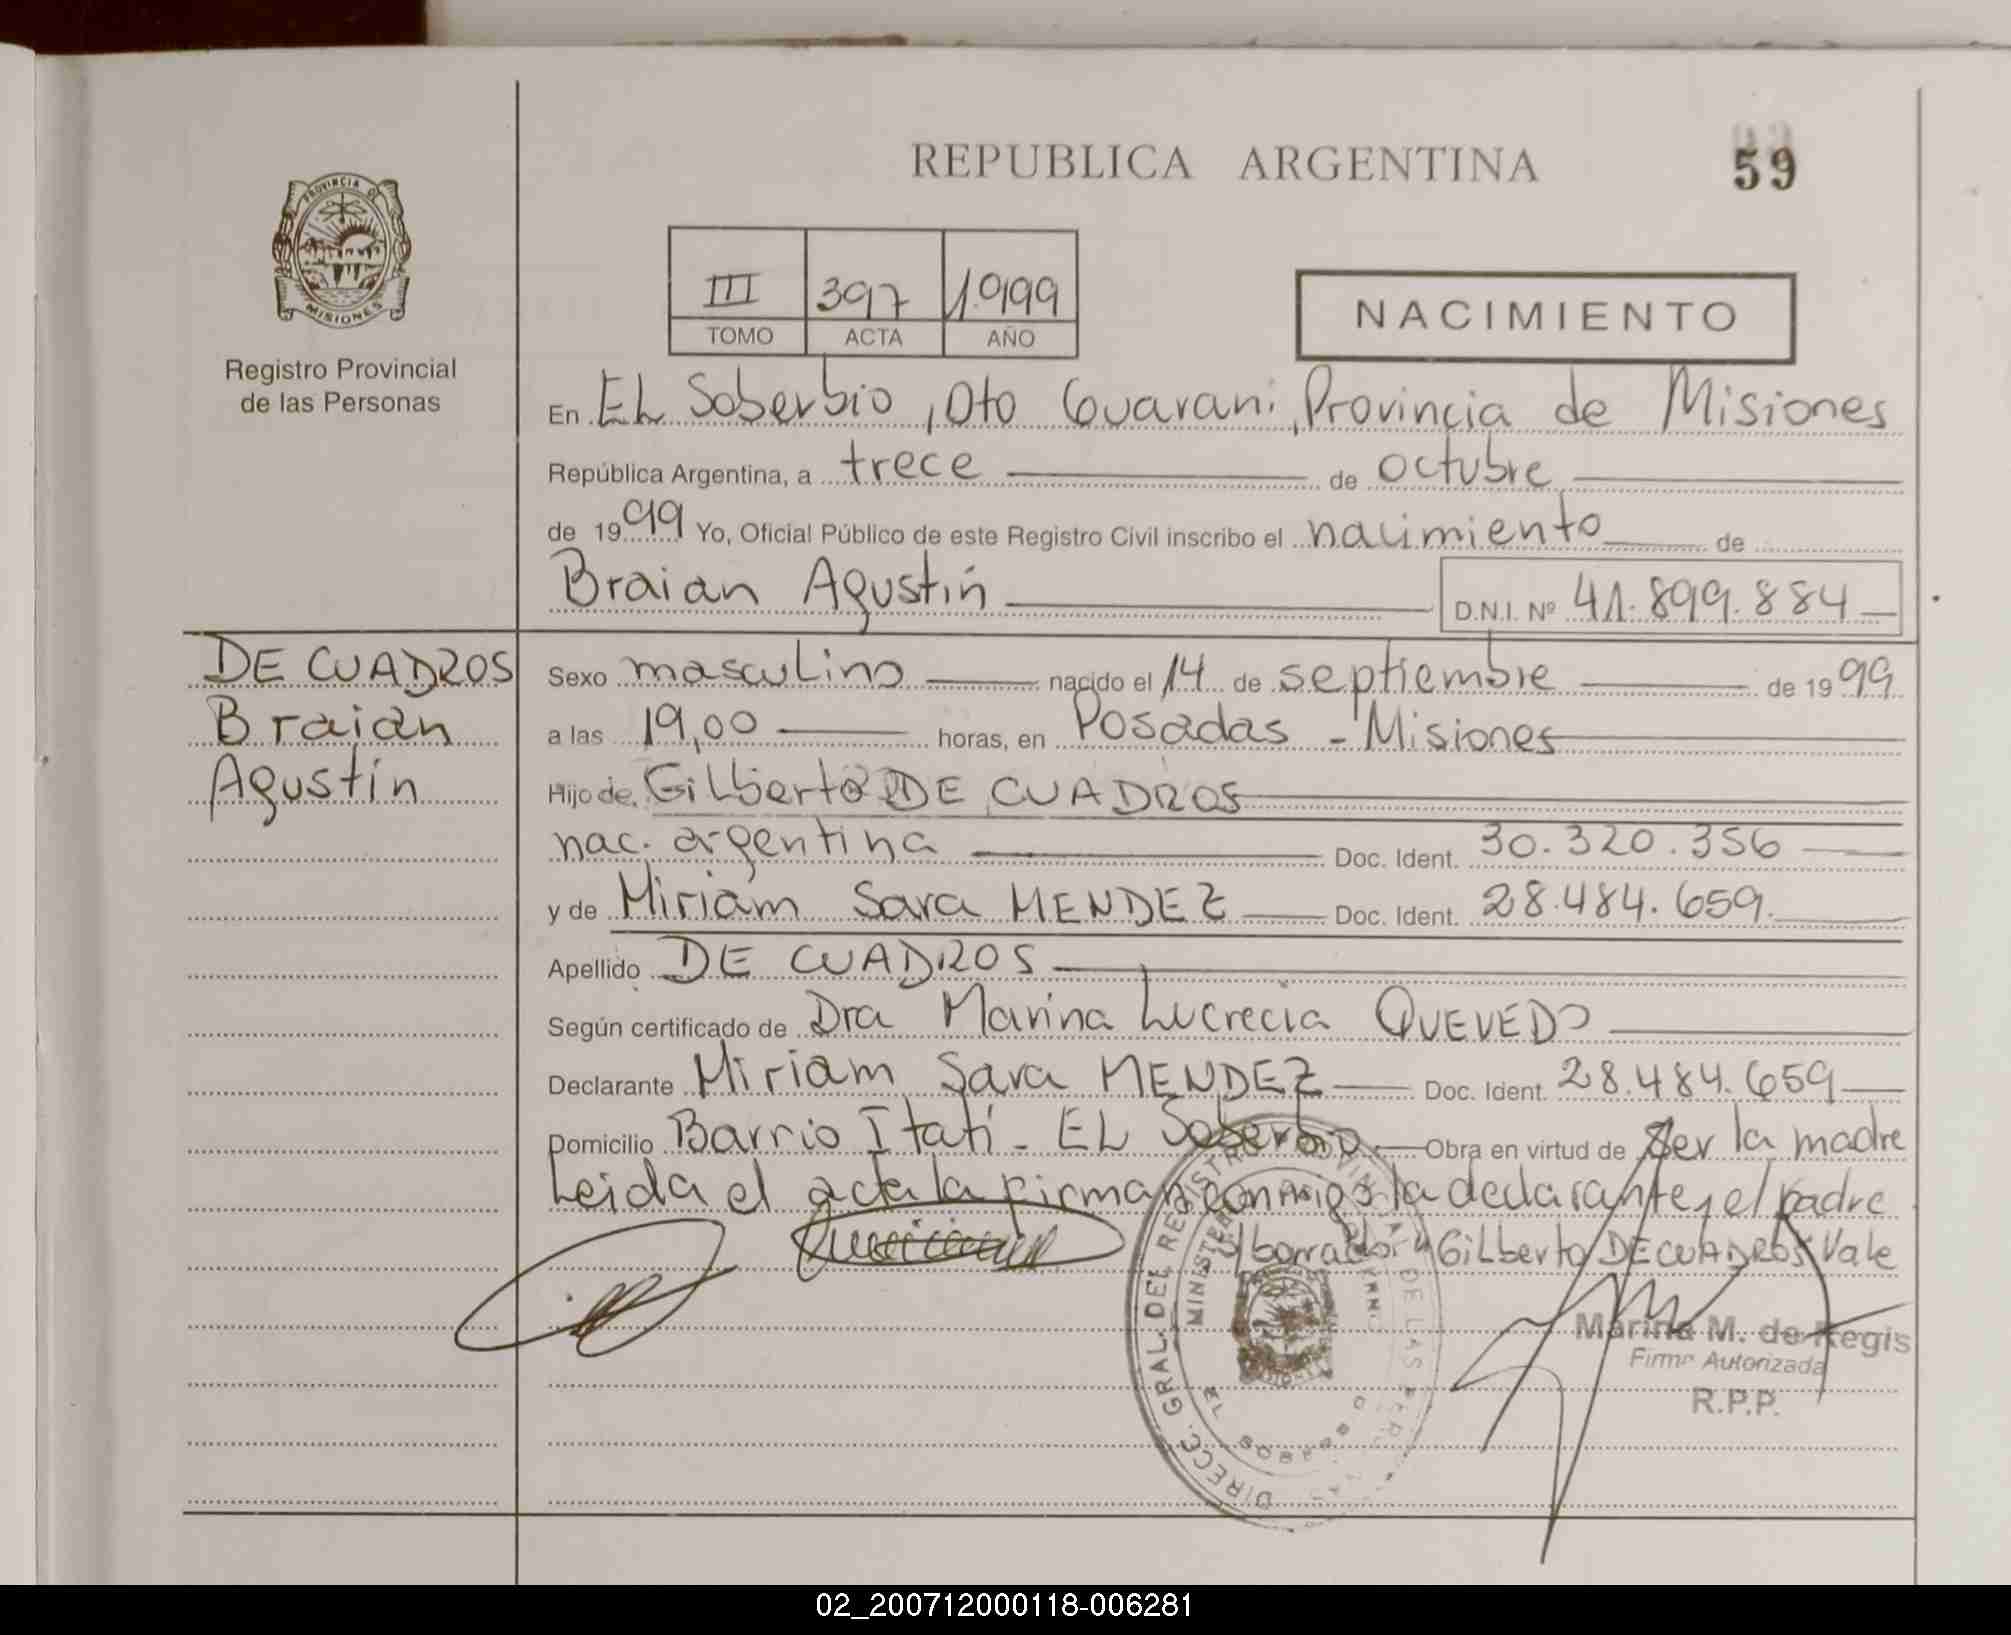 REPUBLICA ARGENTINA
59
PROVINCIA DE
MISIONES
Registro Provincial
de las Personas
III 397 1.999
TOMO ACTA AÑO
NACIMIENTO
En EL Soberbio, Dto Guarani, Provincia de Misiones
República Argentina, a trece de octubre
de 1999 Yo, Oficial Público de este Registro Civil inscribo el nacimiento de
Braian Agustín D.N.I. Nº 41.899.884
DE CUADROS
Braian
Agustín
Sexo masculino nacido el 14 de septiembre de 1999
a las 19,00 horas, en Posadas - Misiones
Hijo de Gilberto DE CUADROS
nac. argentina Doc. Ident. 30.320.356
y de Miriam Sara MENDEZ Doc. Ident. 28.484.659.
Apellido DE CUADROS
Según certificado de Dra Marina Lucrecia QUEVEDO
Declarante Miriam Sara MENDEZ Doc. Ident. 28.484.659
Domicilio Barrio Itatí - EL Soberbio Obra en virtud de ser la madre
Leida el acta la firman conmigo la declarante y el padre
S/borrado: "Gilberto DE CUADROS" Vale
Marina M. de Regis
Firma Autorizada
R.P.P.
DIRECC. GRAL. DEL REGISTRO PROVINCIAL DE LAS
EL SOBERBIO
02_200712000118-006281